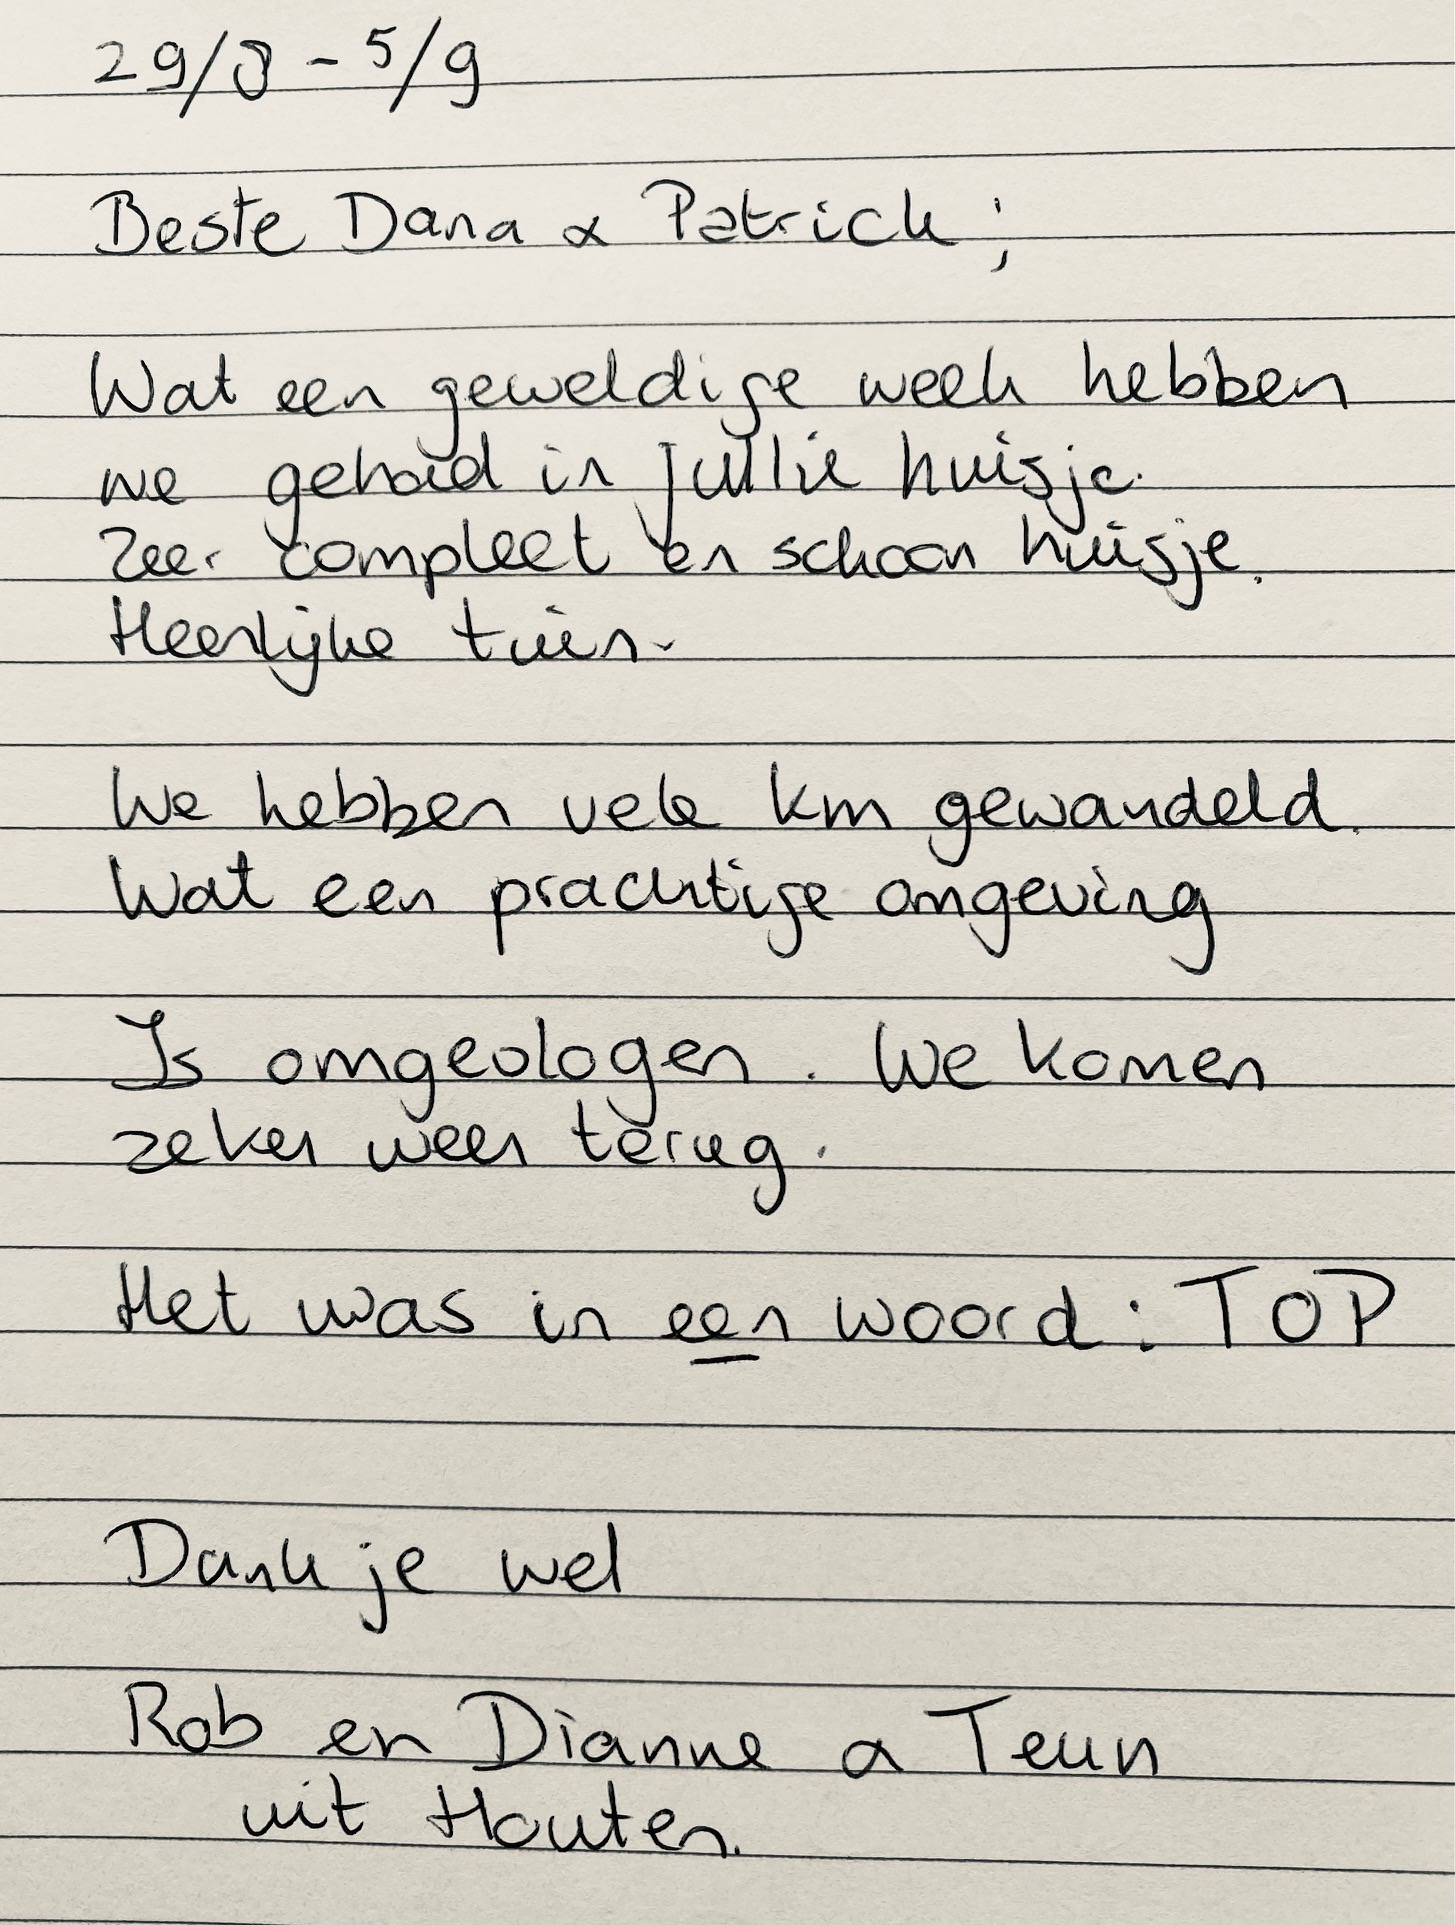 29/8 - 5/9
Beste Dana & Patrick;
Wat een geweldige week hebben
we gehad in jullie huisje.
Zeer compleet en schoon huisje.
Heerlijke tuin.
We hebben vele km gewandeld.
Wat een prachtige omgeving
Is omgevlogen. We komen
zeker weer terug.
Het was in een woord: TOP
Dank je wel
Rob en Dianne & Teun
uit Houten.